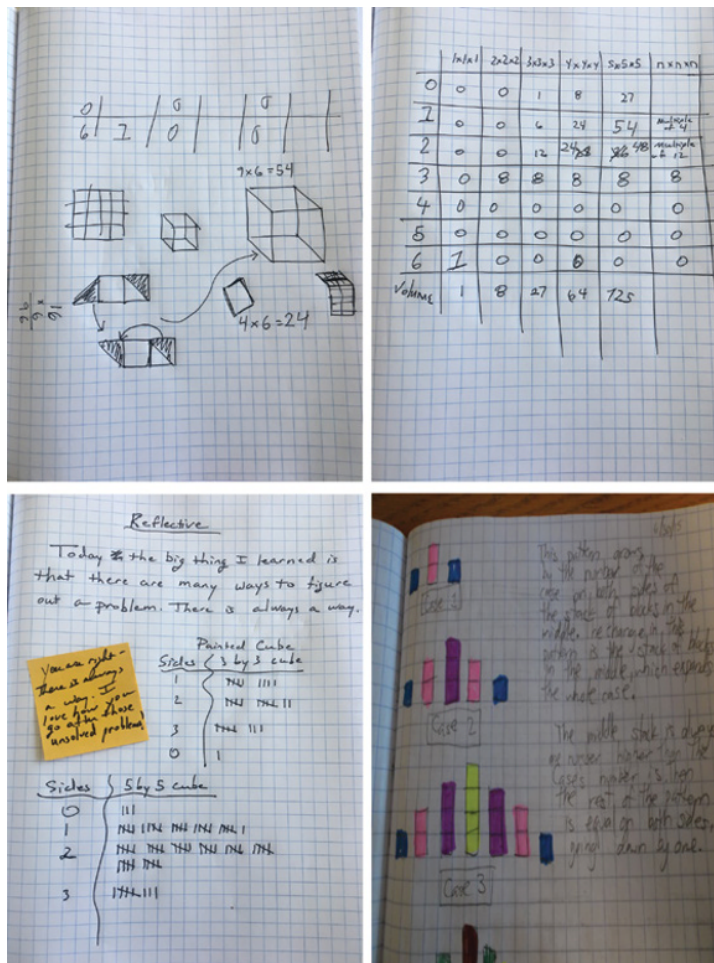 0 0 0
6 1 0 0
9×6=54
4×6=24
1x1x1 2x2x2 3x3x3 4x4x4 5x5x5 n x n x n
0 0 0 1 8 27
1 0 0 6 24 54 multiple
2 0 0 12 24 48 multiple of 12
3 0 8 8 8 8 8
4 0 0 0 0 0 0
5 0 0 0 0 0 0
6 1 0 0 0 0 0
Volume 1 8 27 64 125
Reflective
Today the big thing I learned is
that there are many ways to figure
out a problem. There is always a way.
You are right-
there is always
a way. I
love how you
go after those
unsolved problems!
Painted Cube
Sides 3 by 3 cube
1
2
3
0
Sides 5 by 5 cube
0
1
2
3
This pattern grows
by the number of the
case on both sides of
the stack of blocks in the
middle. The change in this
pattern is the stack of blocks
in the middle which expands
the whole case.
Case 1
Case 2
The middle stack is always
one number higher than the
cases number is then
the rest of the pattern
is equal on both sides,
going down by one.
Case 3